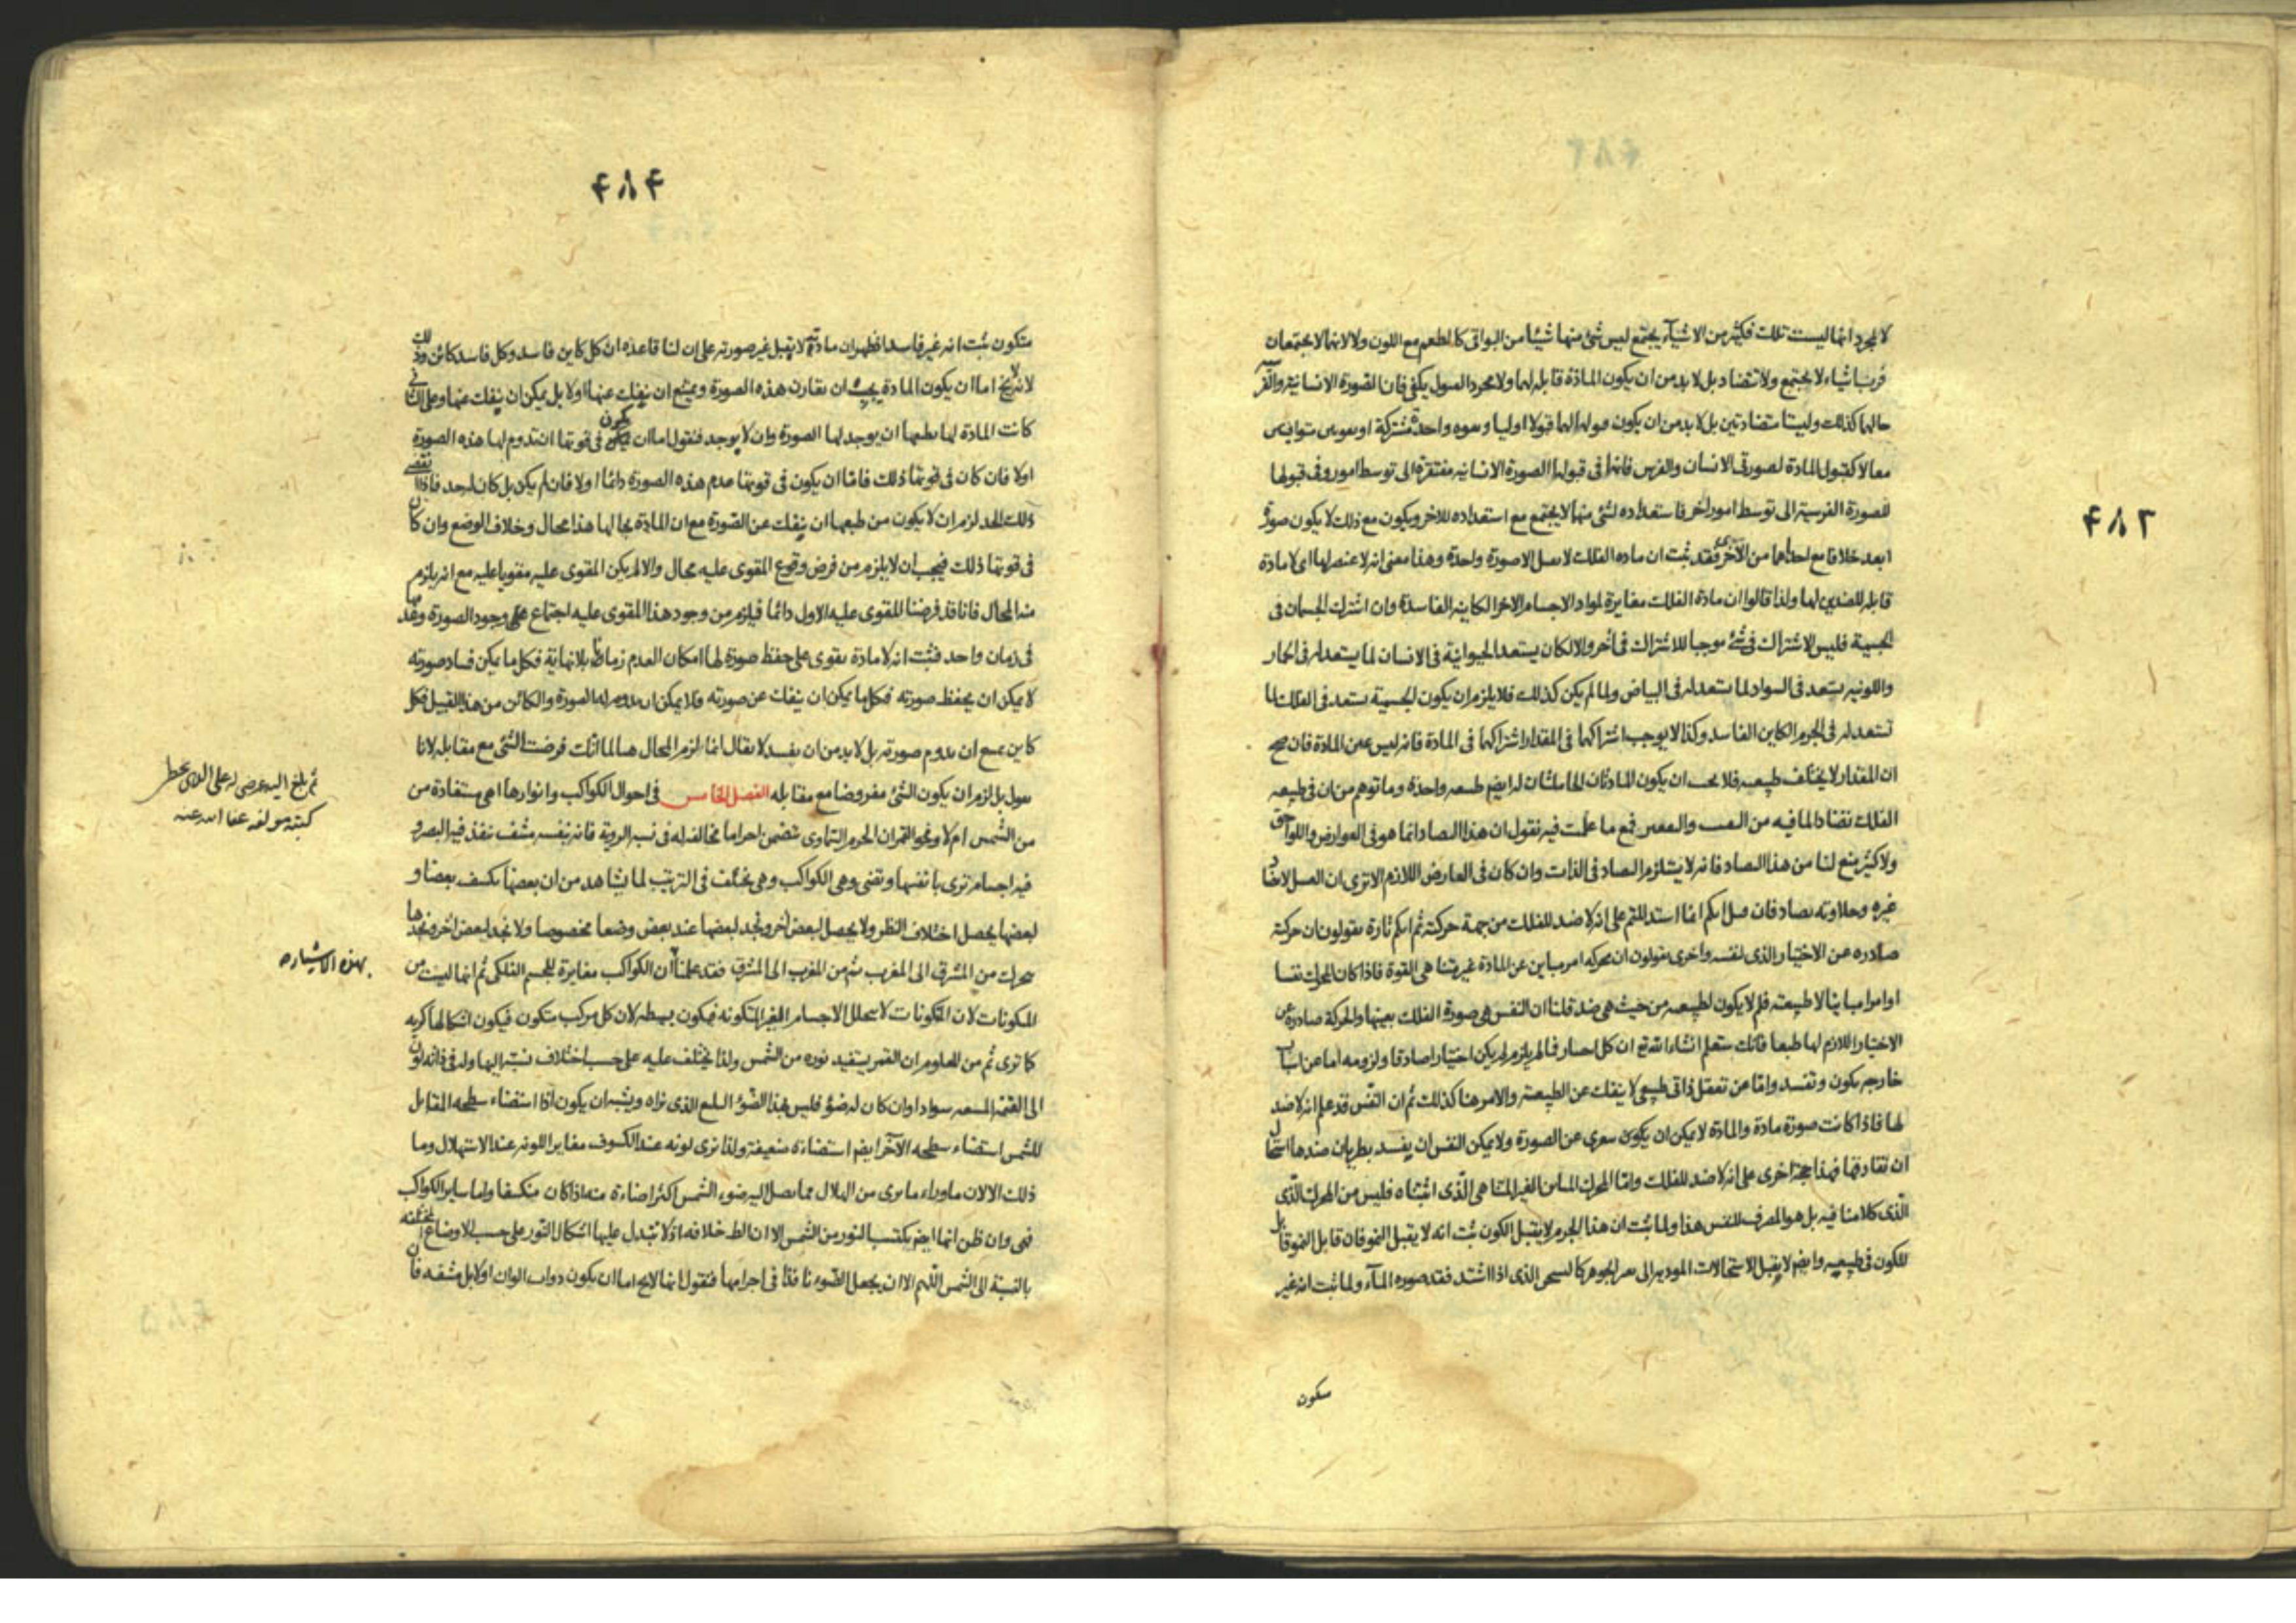 ۴۸۳
لا لمجرد انها ليست تلك فكثير من الاشياء يجتمع ليس شئ منها شيئا من البواقى كالطعم مع اللون ولا لانهما لا يجتمعان
فرب اشياء لا يجتمع ولا تتضاد بل لا بد من ان يكون المادة قابلة لهما ولا مجرد القبول يكفى فان الصورة الانسانية والفر
حالهما كذلك وليستا متضادتين بل لا بد من ان يكون قبولها لهما قبولا اوليا وبقوة واحدة مشتركة او بقوتين متوافيتين
معا لا كقبول المادة لصورتى الانسان والفرس فانها فى قبولها الصورة الانسانية مفتقرة الى توسط امور وفى قبولها
للصورة الفرسية الى توسط امور اخر فاستعداده لشئ منهما لا يجتمع مع استعداده للاخر ويكون مع ذلك لا يكون صورة
ابعد خلافا مع احداهما من الاخرى فقد ثبت ان مادة الفلك لا تقبل الا صورة واحدة وهذا معنى انه لا عنصر لها اى لا مادة
قابلة للضدين لها ولذا قالوا ان مادة الفلك مغايرة لمواد الاجسام الاخر الكاينة الفاسدة وان اشترك الجسمان فى
الجسمية فليس الاشتراك فى شئ موجبا للاشتراك فى آخر والا لكان يستعد الحيوانية فى الانسان لما يستعد له فى الحمار
واللونية يستعد فى السواد لما يستعد له فى البياض ولما لم يكن كذلك فلا يلزم ان يكون الجسمية تستعد فى الفلك لما
تستعد له فى الجرم الكاين الفاسد وكذا لا يوجب اشتراكهما فى المقدار اشتراكهما فى المادة فانه ليس عين المادة فان صح
ان المقدار لا يختلف طبيعته فلا يجب ان يكون المادتان الحاملتان له ايضم طبيعة واحدة وما توهم من ان فى طبيعة
الفلك تضادا لما فيه من التقبيب والتقعير فمع ما علمت فيه نقول ان هذا التضاد انما هو فى العوارض واللواحق
ولا كثير منع لنا من هذا التضاد فانه لا يستلزم التضاد فى الذات وان كان فى العارض اللازم الا ترى ان العسل
غيره وحلاوته تضاد فان قيل انكم انما استدللتم على انه لا ضد للفلك من جهة حركته ثم انكم تارة تقولون ان حركته
صادره عن الاختيار الذى لنفسه واخرى تقولون ان محركه امر مباين عن المادة غير متناهى القوة فاذا كان المحرك نفسا
او امرا مباينا لا طبيعته فلم لا يكون لطبيعته من حيث هى ضد قلنا ان النفس هى صورة الفلك بعينها والحركة صادرة عن
الاختيار اللازم لها طبعا فانك ستعلم انشاء الله تع ان كل اختيار فما لم يلزم لم يكن اختيارا صادقا ولزومه اما عن اسباب
خارجه يكون وتفسد واما عن تعقل ذاتى طبيعى لا ينفك عن الطبيعة والامر هنا كذلك ثم ان النفس قد علم انه لا ضد
لها فاذا كانت صورة مادة والمادة لا يمكن ان يكون تعرى عن الصورة ولا يمكن النفس ان يفسد بطريان ضدها استحال
ان تفارقها فهذا حجة اخرى على انه لا ضد للفلك واما المحرك المباين الغير المتناهى الذى اثبتناه فليس من المحرك الذى
الذى كلامنا فيه بل هو المصرف للنفس هذا ولما ثبت ان هذا الجرم لا يقبل الكون ثبت انه لا يقبل النمو فان قابل النمو قابل
للكون فى طبيعته وايضم لا يقبل الاستحالات المودية الى تغير الجوهر كالتسخن الذى اذا اشتد فقد صوره الماء ولما ثبت انه غير
متكون
۴۸۴
متكون ثبت انه غير فاسد فظهر ان مادته لا يقبل غير صورته على ان لنا قاعده ان كل كاين فاسد وكل فاسد كائن وذلك
لانه لا يخ اما ان يكون المادة يجب ان تقارن هذه الصورة ويمتنع ان ينفك عنها او لا بل يمكن ان ينفك عنها وعلى الثانى
كانت المادة لها بطبعها ان يوجد لها الصورة وان لا يوجد فنقول اما ان يكون فى قوتها ان تدوم لها هذه الصورة
اولا فان كان فى قوتها ذلك فاما ان يكون فى قوتها عدم هذه الصورة دائما اولا فان لم يكن بل كان له حد فاذا انقضى
ذلك الحد لزم ان لا يكون من طبعها ان ينفك عن الصورة مع ان المادة بحالها هذا محال وخلاف الوضع وان كان
فى قوتها ذلك فيجب ان لا يلزم من فرض وقوع المقوى عليه محال والا لم يكن المقوى عليه مقويا عليه مع انه يلزم
منه المحال فانا قد فرضنا المقوى عليه الاول دائما فيلزم من وجود هذا المقوى عليه اجتماع وجود الصورة وفقدها
فى زمان واحد فثبت انه لا مادة تقوى على حفظ صورة لها امكان العدم زمانا بلا نهاية فكل ما يمكن فساد صورته
لا يمكن ان يحفظ صورته فكل ما يمكن ان ينفك عن صورته فلا يمكن ان يدوم له الصورة والكائن من هذا القبيل فكل
كاين يمتنع ان يدوم صورته بل لا بد من ان يفسد لا يقال انما لزم المحال هنا لما انك فرضت الشئ مع مقابله لانا
نقول بل لزم ان يكون الشئ مفروضا مع مقابله الفصل الخامس فى احوال الكواكب وانوارها اهى مستفادة من
من الشمس ام لا ومحو القمر ان الجرم السماوى يتضمن اجراما مخالفة له فى نسبة الروية فانه بنفسه مشف ينفذ فيه البصر و
فيه اجسام ترى بانفسها وتضئ وهى الكواكب وهى يختلف فى الترتيب لما يشاهد من ان بعضها يكسف بعضا و
لبعضها يحصل اختلاف النظر ولا يحصل لبعض آخر ونجد لبعضها عند بعض وضعا مخصوصا ولا نجد لبعض آخر ونجدها
تتحرك من المشرق الى المغرب ثم من المغرب الى المشرق فقد علمنا ان الكواكب مغايرة للجسم الفلكى ثم انها ليست من
المتكونات لان المتكونات لا تتخلل الاجسام الغير المتكونه فيكون بسيطه لان كل مركب متكون فيكون اشكالها كريه
كما ترى ثم من المعلوم ان القمر يستفيد نوره من الشمس ولذا يختلف عليه على حسب اختلاف نسبته اليها وله فى ذاته لون
الى القتمة المشبعه سوادا وان كان له ضوء فليس هذا الضوء البالغ الذى نراه ويشبه ان يكون اذا استضاء سطحه المقابل
للشمس استضاء سطحه الآخر ايضم استضاءة ضعيفة ولذا ترى لونه عند الكسوف مغايرا للونه عند الاستهلال وما
ذلك الا لان ما وراء ما يرى من الهلال مما يصل اليه ضوء الشمس اكثر اضاءة منه اذا كان منكسفا واما ساير الكواكب
فهى وان ظن انها ايضم يكتسب النور من الشمس الا ان الظ خلافه اذ لا تتبدل عليها اشكال النور على حسب الاوضاع المختلفه
بالنسبة الى الشمس اللهم الا ان يجعل الضوء نافذا فى اجرامها فنقول انها لا يخ اما ان يكون ذوات الوان اولا بل مشفه فان
ثم بلغ اليه عرضى له على الذى بخط
كتبه مولفه عفا الله عنه